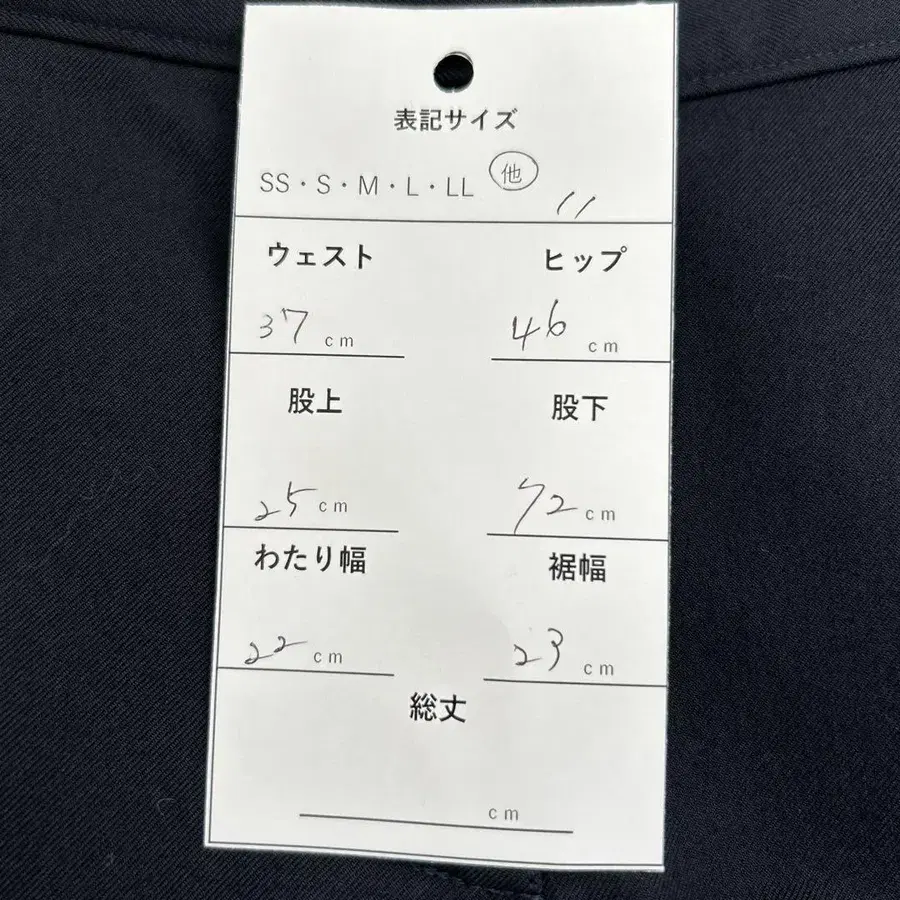 表記サイズ
SS・S・M・L・LL 他 11
ウェスト ヒップ
37 cm 46 cm
股上 股下
25 cm 72 cm
わたり幅 裾幅
22 cm 23 cm
総丈
cm